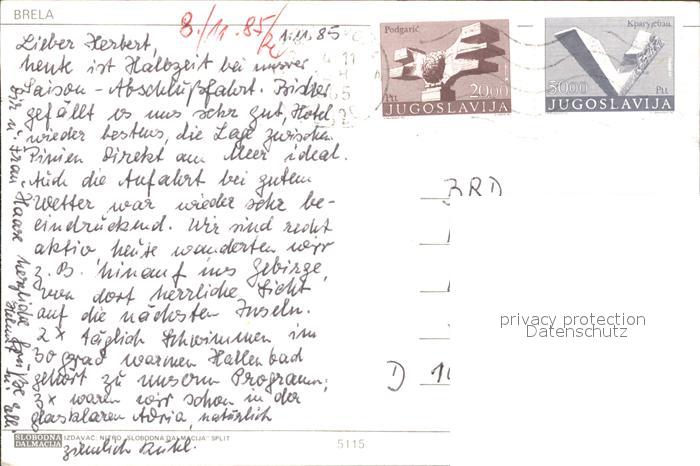 BRELA
8./11.85
1.11.85
Lieber Herbert,
heute ist Halbzeit bei unserer
Saison-Abschlußfahrt. Bisher
gefällt es uns sehr gut, Hotel
wieder bestens, die Lage zwischen
Pinien direkt am Meer ideal.
Auch die Anfahrt bei gutem
Wetter war wieder sehr be-
eindruckend. Wir sind recht
aktiv heute wanderten wir
z.B. hinauf ins Gebirge,
von dort herrliche Sicht
auf die nächsten Inseln.
2x täglich Schwimmen im
30 grad warmen Hallenbad
gehört zu unserm Programm;
3x waren wir schon in der
glasklaren Adria, natürlich
ziemlich kühl.
Dir u. Frau Haase herzliche Grüße
Helmut
Podgarić
2000
Ptt
JUGOSLAVIJA
Крагујевац
5000
Ptt
JUGOSLAVIJA
BRD
D 10
privacy protection
Datenschutz
SLOBODNA
DALMACIJA
IZDAVAČ: NIŠRO „SLOBODNA DALMACIJA" SPLIT
5115